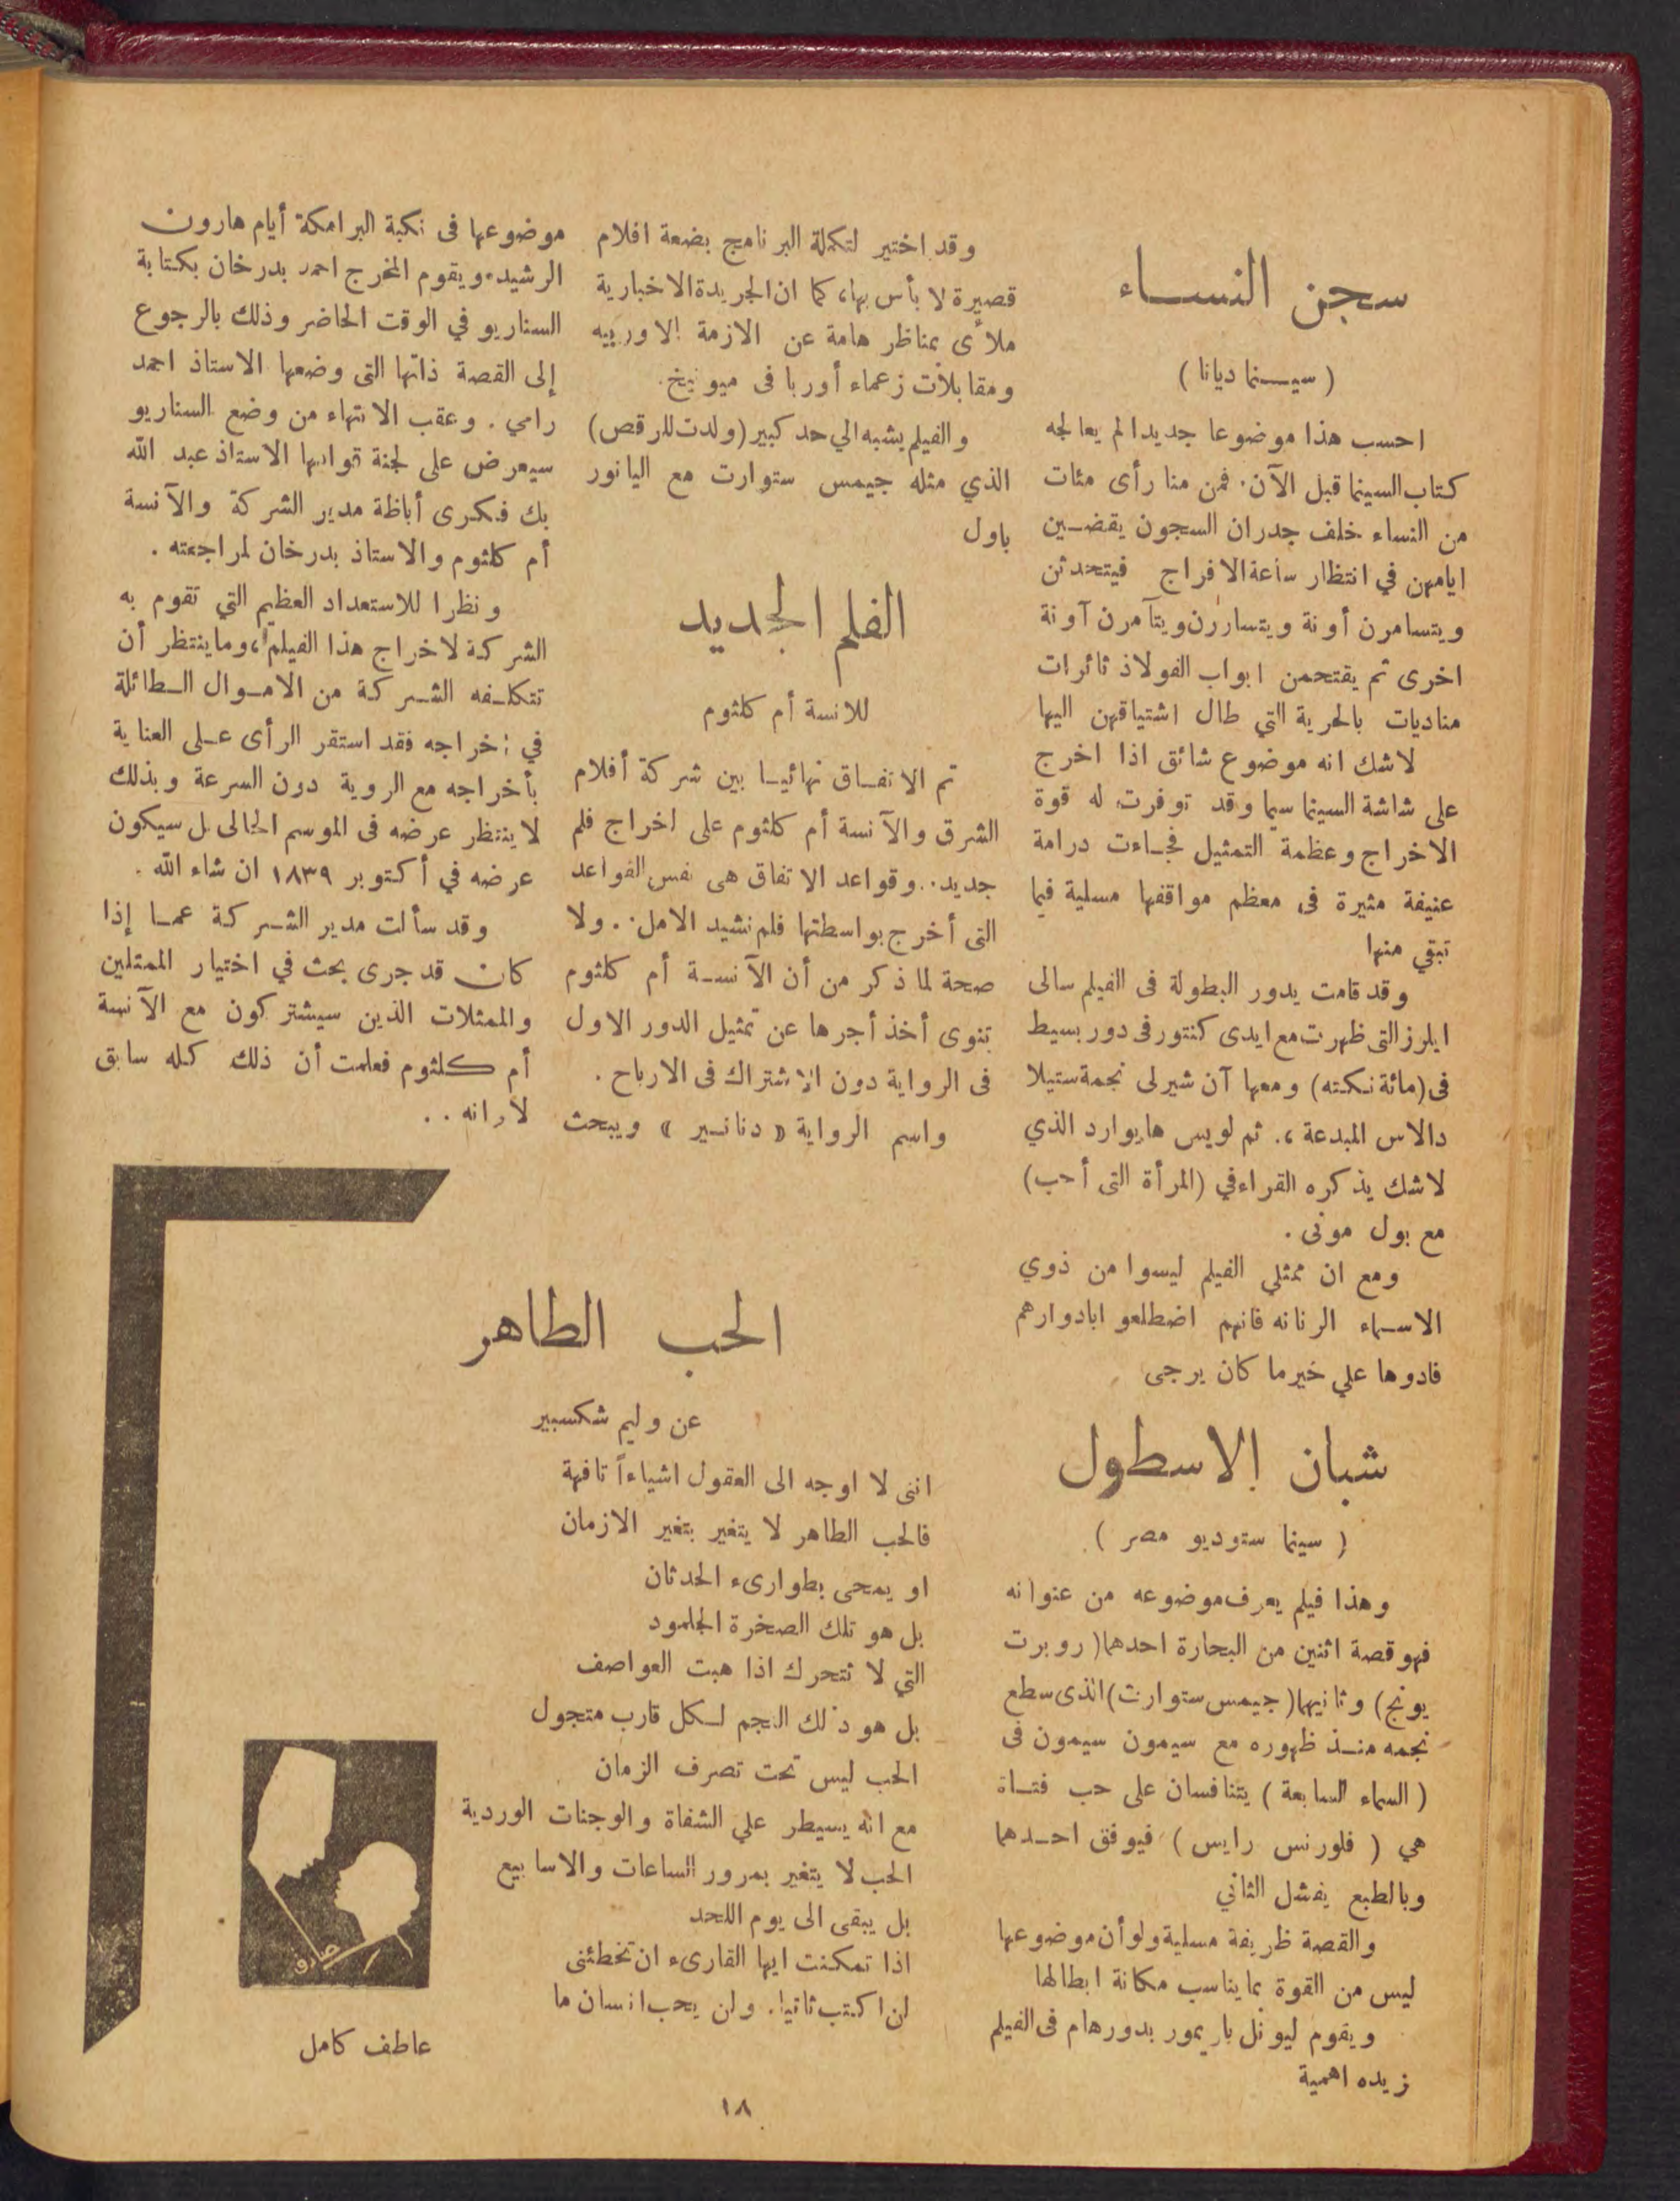 سجن النساء
( سينما ديانا )
احسب هذا موضوعا جديدا لم يعالجه
كتاب السينما قبل الآن . فمن منا رأى مئات
من النساء خلف جدران السجون يقضين
ايامهن في انتظار ساعة الافراج فيتحدثن
ويتسامرن أونة ويتساررن ويتآمرن آونة
اخرى ثم يقتحمن ابواب الفولاذ ثائرات
مناديات بالحرية التي طال اشتياقهن اليها
لاشك انه موضوع شائق اذا اخرج
على شاشة السينما سيما وقد توفرت له قوة
الاخراج وعظمة التمثيل فجاءت درامة
عنيفة مثيرة فى معظم مواقفها مسلية فيما
تبقي منها
وقد قامت يدور البطولة فى الفيلم سالى
ايلرز التى ظهرت مع ايدى كنتور فى دور بسيط
فى (مائة نكته) ومعها آن شيرلى نجمة ستيلا
دالاس المبدعة ،. ثم لويس هايوارد الذي
لاشك يذكره القراء في (المرأة التى أحب)
مع بول مونى .
ومع ان ممثلي الفيلم ليسوا من ذوي
الاسماء الرنانه فانهم اضطلعو ابادوارهم
فادوها علي خير ما كان يرجى
شبان الاسطول
( سينما ستوديو مصر )
وهذا فيلم يعرف موضوعه من عنوانه
فهو قصة اثنين من البحارة احدهما ( روبرت
يونج) وثانيهما ( جيمس ستوارت) الذى سطع
نجمه منذ ظهوره مع سيمون سيمون فى
( السماء السابعة ) يتنافسان على حب فتاة
هي ( فلورنس رايس ) فيوفق احدهما
وبالطبع يفشل الثاني
والقصة ظريفة مسلية ولو أن موضوعها
ليس من القوة بما يناسب مكانة ابطالها
ويقوم ليونل باريمور بدور هام فى الفيلم
زيده اهمية
وقد اختير لتكملة البرنامج بضعة افلام
قصيرة لا بأس بها، كما ان الجريدة الاخبارية
ملأى بمناظر هامة عن الازمة الاوربيه
ومقابلات زعماء أوربا فى ميونيخ .
والفيلم يشبه الي حد كبير (ولدت للرقص)
الذي مثله جيمس ستوارت مع اليانور
باول
الفلم الجديد
للانسة أم كلثوم
تم الاتفاق نهائيا بين شركة أفلام
الشرق والآنسة أم كلثوم على اخراج فلم
جديد .. وقواعد الاتفاق هى نفس القواعد
التى أخرج بواسطتها فلم نشيد الامل . . ولا
صحة لما ذكر من أن الآنسة أم كلثوم
تنوى أخذ أجرها عن تمثيل الدور الاول
فى الرواية دون الاشتراك فى الارباح .
واسم الرواية « دنانير » ويبحث
موضوعها فى نكبة البرامكة أيام هارون
الرشيد . ويقوم المخرج احمد بدرخان بكتابة
السناريو في الوقت الحاضر وذلك بالرجوع
إلى القصة ذاتها التى وضعها الاستاذ احمد
رامي . وعقب الانتهاء من وضع السناريو
سيعرض على لجنة قوامها الاستاذ عبد الله
بك فكرى أباظة مدير الشركة والآنسة
أم كلثوم والاستاذ بدرخان لمراجعته .
ونظرا للاستعداد العظيم التي تقوم به
الشركة لاخراج هذا الفيلم ، وما ينتظر أن
تتكلفه الشركة من الاموال الطائلة
في اخراجه فقد استقر الرأى على العناية
بأخراجه مع الروية دون السرعة وبذلك
لا ينتظر عرضه فى الموسم الحالى بل سيكون
عرضه في أكتوبر ١٨٣٩ ان شاء الله .
وقد سألت مدير الشركة عما إذا
كان قد جرى بحث في اختيار الممثلين
والممثلات الذين سيشتركون مع الآنسة
أم كلثوم فعلمت أن ذلك كله سابق
لأوانه . .
الحب الطاهر
عن وليم شكسبير
اننى لا اوجه الى العقول اشياءاً تافهة
فالحب الطاهر لا يتغير بتغير الازمان
او يمحى بطوارىء الحدثان
بل هو تلك الصخرة الجلمود
التي لا تتحرك اذا هبت العواصف
بل هو ذلك النجم لكل قارب متجول
الحب ليس تحت تصرف الزمان
مع انه يسيطر علي الشفاة والوجنات الوردية
الحب لا يتغير بمرور الساعات والاسابيع
بل يبقى الى يوم اللحد
اذا تمكنت ايها القارىء ان تخطئنى
لن اكتب ثانيا . ولن يحب انسان ما
عاطف كامل
١٨